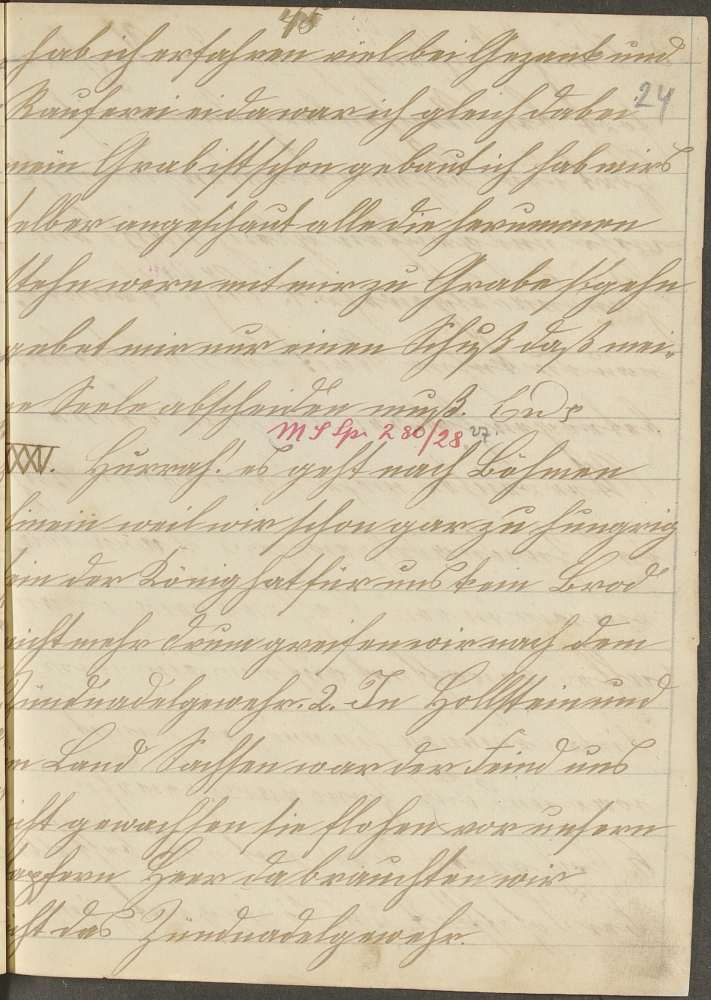 45
hab ich erfahren viel bei Gezank und
24
Rauferei ei da war ich gleich dabei
mein Grab ist schon gebaut ich hab mirs
selber angeschaut alle die herummen
stehn wern mit mir zu Grabe gehn
gebet mir nur einen Schuß daß mei-
ne Seele abscheiden muß. Ende
M S Sp. 280/28 27.
XXV. Hurrah! es geht nach Böhmen
hinein weil wir schon gar zu hungrig
sein der König hat für uns kein Brod
nicht mehr drum greifen wir nach dem
Zündnadelgewehr. 2. In Hollstein und
in Land Sachsen war der Feind uns
nicht gewachsen sie flohen vor unsern
tapfern Heer da brauchten wir
nicht das Zündnadelgewehr.